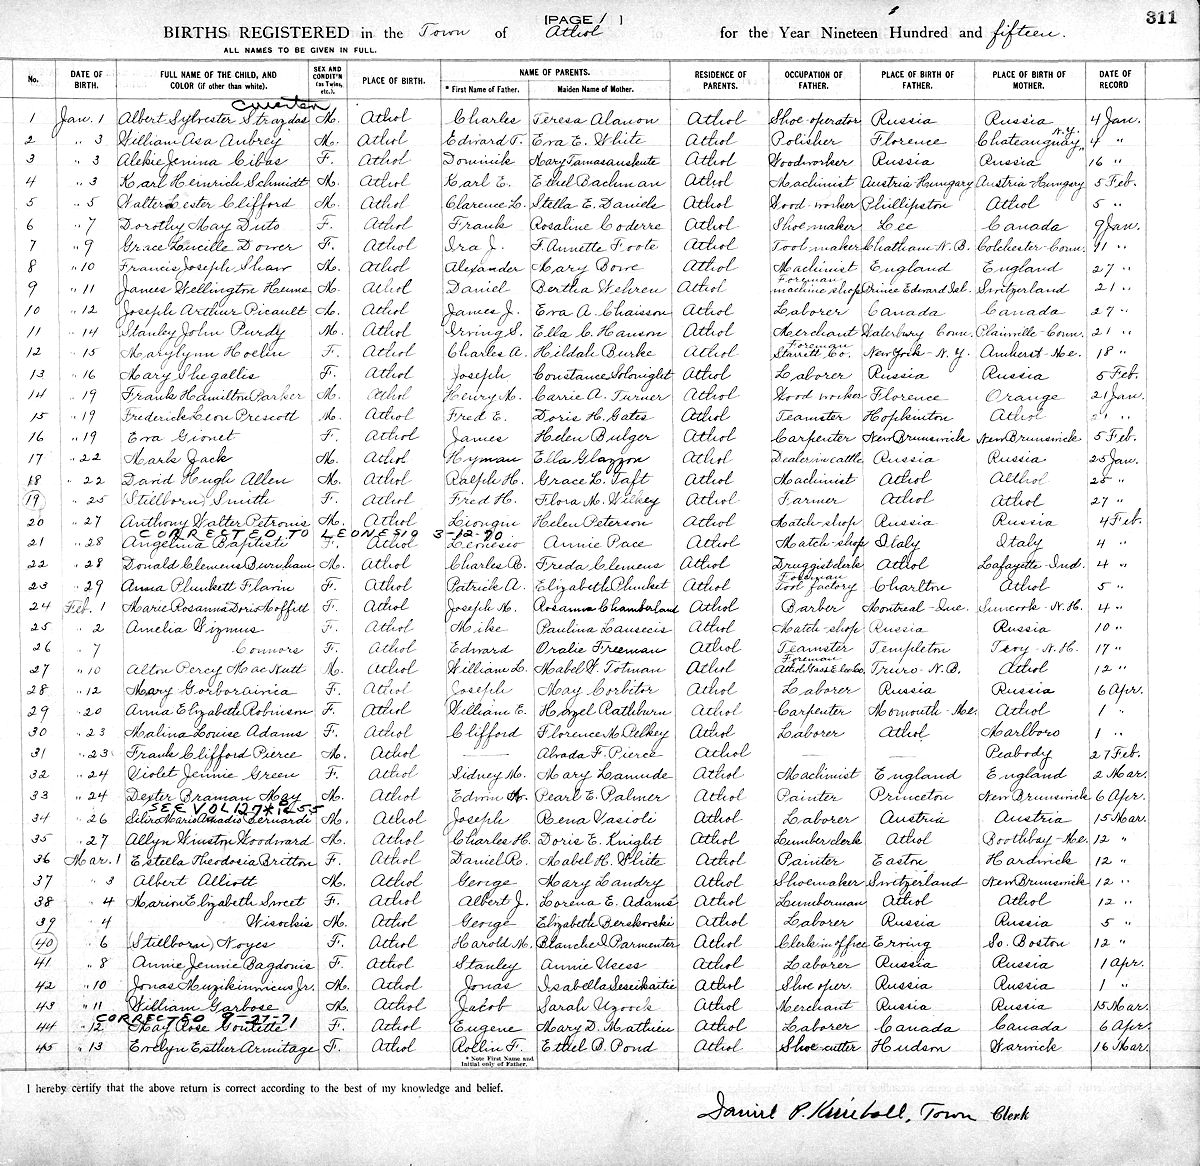 [PAGE 1 ]
311
BIRTHS REGISTERED in the Town of Athol for the Year Nineteen Hundred and fifteen.
ALL NAMES TO BE GIVEN IN FULL.
No. DATE OF BIRTH. FULL NAME OF THE CHILD, AND COLOR (if other than white). SEX AND CONDIT'N (as Twins, etc.). PLACE OF BIRTH. NAME OF PARENTS. * First Name of Father. Maiden Name of Mother. RESIDENCE OF PARENTS. OCCUPATION OF FATHER. PLACE OF BIRTH OF FATHER. PLACE OF BIRTH OF MOTHER. DATE OF RECORD
1 Jan. 1 Albert Sylvester Strazdas M. Athol Charles Teresa Alanon Athol Shoe operator Russia Russia 4 Jan.
2 " 3 William Asa Aubrey M. Athol Edward T. Eva E. White Athol Polisher Florence Chateauguay, N.Y. 4 "
3 " 3 Alekie Jenina Cibas F. Athol Dominik Mary Tamasauskute Athol Woodworker Russia Russia 16 "
4 " 3 Karl Heinrich Schmidt M. Athol Karl E. Ethel Bachman Athol Machinist Austria Hungary Austria Hungary 5 Feb.
5 " 5 Walter Lester Clifford M. Athol Clarence L. Stella E. Daniels Athol Wood-worker Phillipston Athol 5 "
6 " 7 Dorothy May Duto F. Athol Frank Rosaline Coderre Athol Shoemaker Lee Canada 9 Jan.
7 " 9 Grace Lucille Dower F. Athol Ira J. F. Annette Foote Athol Tool maker Chatham N.B. Colchester-Conn. 11 "
8 " 10 Francis Joseph Shaw M. Athol Alexander Mary Bowe Athol Machinist England England 27 "
9 " 11 James Wellington Heume M. Athol Daniel Bertha Wehren Athol Foreman machine shop Prince Edward Isl. Switzerland 21 "
10 " 12 Joseph Arthur Picault M. Athol James J. Eva A. Chaisson Athol Laborer Canada Canada 27 "
11 " 14 Stanley John Purdy M. Athol Irving S. Ella C. Hanson Athol Merchant Waterbury-Conn. Plainville-Conn. 21 "
12 " 15 Marylynn Hoelen F. Athol Charles A. Hildah Burke Athol Foreman Starrett Co. New York-N.Y. Amherst-Me. 18 "
13 " 16 Mary Shegallis F. Athol Joseph Constance Soloniglet Athol Laborer Russia Russia 5 Feb.
14 " 19 Frank Hamilton Parker M. Athol Henry M. Carrie A. Turner Athol Wood worker Florence Orange 21 Jan.
15 " 19 Frederick Leon Prescott M. Athol Fred E. Doris H. Gates Athol Teamster Hopkinton Athol 21 "
16 " 19 Eva Gionet F. Athol James Helen Bulger Athol Carpenter New Brunswick New Brunswick 5 Feb.
17 " 22 Mark Jack M. Athol Hyman Ella Glazzon Athol Dealer in cattle Russia Russia 25 Jan.
18 " 22 David Hugh Allen M. Athol Ralph H. Grace L. Taft Athol Machinist Athol Athol 25 "
19 " 25 (Stillborn) Smith F. Athol Fred H. Flora M. Wilkey Athol Farmer Athol Athol 27 "
20 " 27 Anthony Walter Petronis M. Athol Liongin Helen Peterson Athol Match-shop Russia Russia 4 Feb.
CORRECTED TO LEONESIO 3-12-70
21 " 28 Angelina Baptiste F. Athol Leonesio Annie Pace Athol Match-shop Italy Italy 4 "
22 " 28 Donald Clemens Burnham M. Athol Charles B. Freda Clemens Athol Druggist clerk Athol Lafayette-Ind. 4 "
23 " 29 Anna Plunkett Flavin F. Athol Patrick A. Elizabeth Plunket Athol Foreman Tool factory Charlton Athol 5 "
24 Feb. 1 Marie Rosanna Doris Moffitt F. Athol Joseph M. Rosanna Chamberland Athol Barber Montreal-Que. Suncook-N.H. 4 "
25 " 2 Amelia Wizmus F. Athol Mike Paulina Lausecis Athol Match-shop Russia Russia 10 "
26 " 7 Connors F. Athol Edward Oralie Freeman Athol Teamster Templeton Troy-N.H. 17 "
27 " 10 Alton Percy MacNutt M. Athol William L. Mabel W. Totman Athol Foreman Athol Gas & Elec Co. Truro-N.B. Athol 12 "
28 " 12 Mary Gorborainia F. Athol Joseph May Corbitor Athol Laborer Russia Russia 6 Apr.
29 " 20 Anna Elizabeth Robinson F. Athol William E. Hazel Rathburn Athol Carpenter Monmouth-Me. Athol 1 "
30 " 23 Malina Louise Adams F. Athol Clifford Florence M. Pelkey Athol Laborer Athol Marlboro 1 "
31 " 23 Frank Clifford Pierce M. Athol — Alvada F. Pierce Athol — Peabody 27 Feb.
32 " 24 Violet Jennie Green F. Athol Sidney M. Mary Lamude Athol Machinist England England 2 Mar.
33 " 24 Dexter Braman May M. Athol Edwin H. Pearl E. Palmer Athol Painter Princeton New Brunswick 6 Apr.
SEE VOL 127 * P. 55
34 " 26 Silvio Mario Amadio Bernardi M. Athol Joseph Rena Vasioli Athol Laborer Austria Austria 15 Mar.
35 " 27 Allyn Winston Woodward M. Athol Charles H. Doris E. Knight Athol Lumber clerk Athol Boothbay-Me. 12 "
36 Mar. 1 Esteela Theodosia Britton F. Athol Daniel R. Mabel H. White Athol Painter Easton Hardwick 12 "
37 " 3 Albert Alliott M. Athol George Mary Landry Athol Shoemaker Switzerland New Brunswick 12 "
38 " 4 Marion Elizabeth Sweet F. Athol Albert J. Lorena E. Adams Athol Lumberman Athol Athol 12 "
39 " 4 Wisockis M. Athol George Elizabeth Berskovski Athol Laborer Russia Russia 5 "
40 " 6 (Stillborn) Noyes F. Athol Harold M. Blanche I. Parmenter Athol Clerk in office Erving So. Boston 12 "
41 " 8 Annie Jennie Bagdonis F. Athol Stanley Annie Usess Athol Laborer Russia Russia 1 Apr.
42 " 10 Jonas Muzikinvicus Jr. M. Athol Jonas Isabella Sesikaitie Athol Shoe oper. Russia Russia 1 "
43 " 11 William Garbose M. Athol Jacob Sarah Uzvock Athol Merchant Russia Russia 15 Mar.
CORRECTED 9-27-71
44 " 12 May Rose Goulette F. Athol Eugene Mary D. Mathieu Athol Laborer Canada Canada 6 Apr.
45 " 13 Evelyn Esther Armitage F. Athol Rollin F. Ethel B. Pond Athol Shoe cutter Hudson Warwick 16 Mar.
* Note First Name and Initial only of Father.
I hereby certify that the above return is correct according to the best of my knowledge and belief.
Daniel P. Kimball, Town Clerk